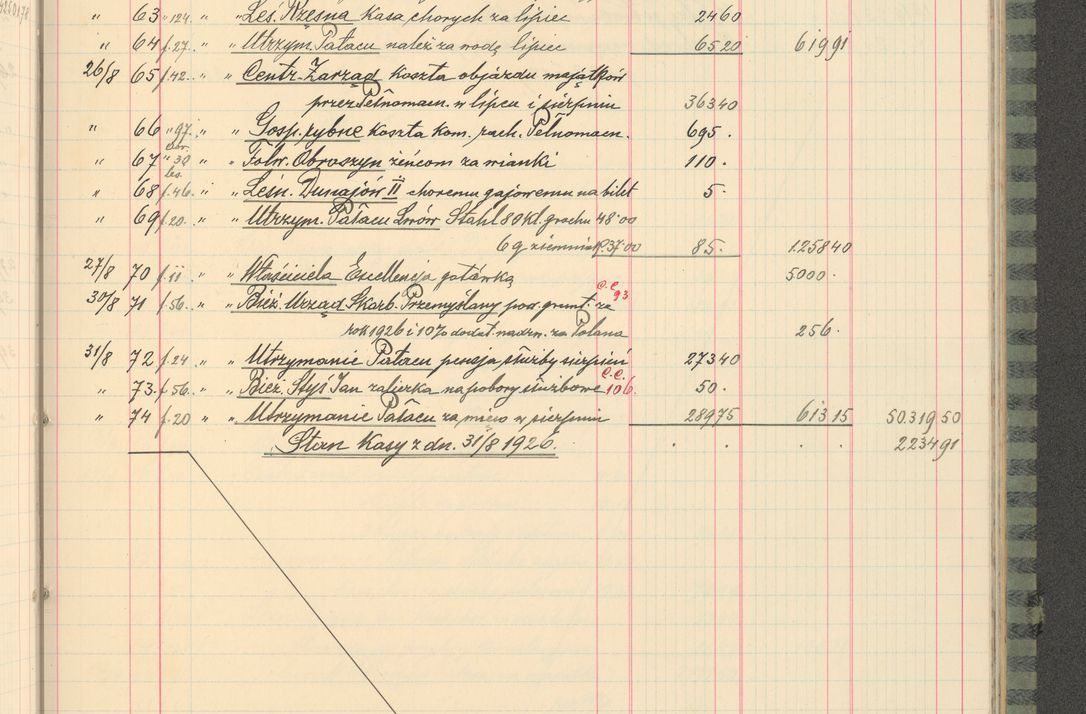 " 63 " 124. " " Leś. Rzęsna Kasa chorych za lipiec 24 60
" 64 f. 27. " " Utrzym. Pałacu należ za wodę lipiec 65 20 619 91
26/8 65 f. 42. " " Centr. Zarząd Koszta objazdu majątków
przez Pełnomocn. w lipcu i sierpniu 363 40
" 66 " 97. " " Gosp. rybne Koszta kom. rach. Pełnomocn. 695 .
" 67 " 30 " " Folw. Obroszyn żeńcom za wianki 110 .
" 68 f. 46. " " Leśn. Dunajów II choremu gajowemu na bilet 5 .
" 69 f. 20. " " Utrzym. Pałacu Lwów Stahl 80 kl. grochu 48.00
6 q. ziemniak. 37.00 85. 1258 40
27/8 70 f. 11 " " Właściciela Excellencja gotówką 5000 .
C.C. 93
30/8 71 f. 56. " " Bież. Urząd Skarb. Przemyślany pod. grunt. za
rok 1926 i 10% dodat. nadzw. za Polana 256 .
31/8 72 f. 24 " " Utrzymanie Pałacu pensja służby sierpień 273 40
C.C. 106.
" 73. f. 56. " " Bież. Styś Jan zaliczka na pobory służbowe 50 .
" 74 f. 20 " " Utrzymanie Pałacu za mięso w sierpniu 289 75 613 15 50.319 50
Stan Kasy z dn. 31/8 1926. . . . 2234 91